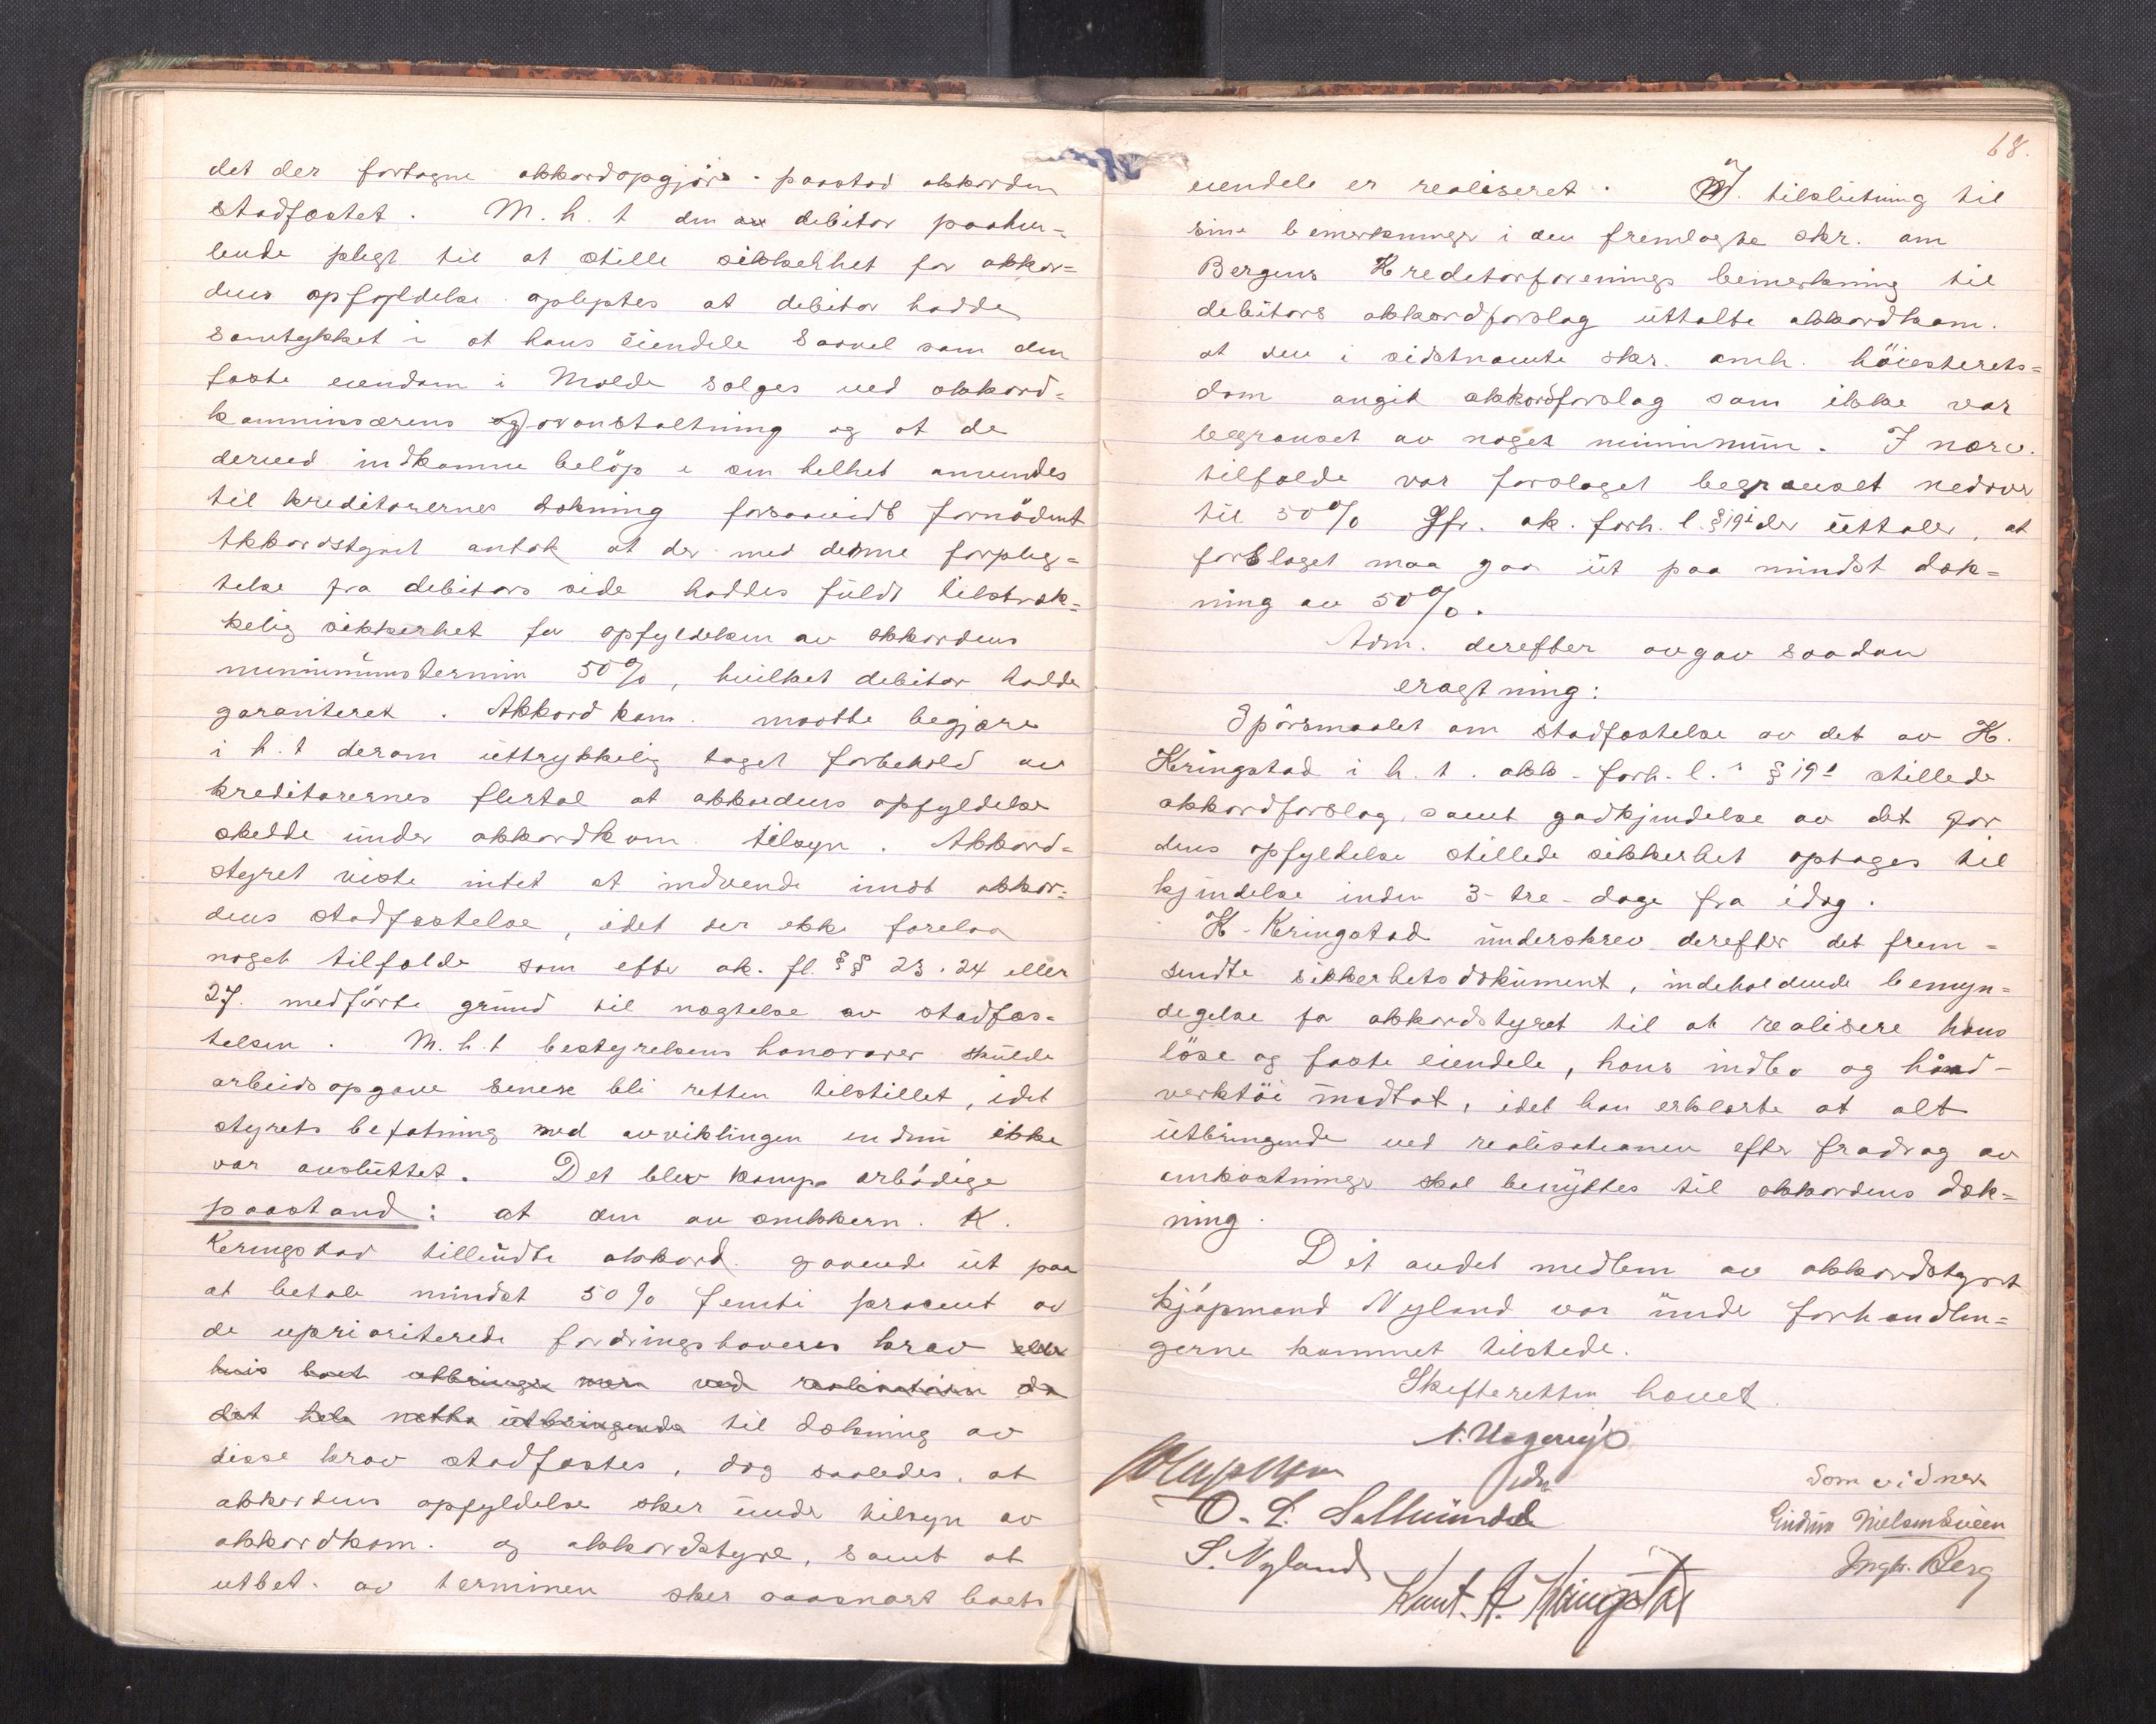 det der fortagne akkordopgjörs paastod akkorden
stadfæstet. M. h. t den debitor paahvi-
lende plegt til at stille sikkerhet for akkor-
dens opfyldelse oplystes at debitor hadde
samtykket i at hans eiendele saavel som den
faste eiendom i Molde sælges ved akkord-
kommissærens foranstaltning og at de
derved indkomne belöp i sin helhet anvendes
til kreditorernes dækning forsaavidt fornödent
Akkordstyret antok at der med denne forplig-
telse fra debitors side haddes fuldt tilstræk-
kelig sikkerhet for opfyldelsen av akkordens
minimumstermin 50%, hvilket debitor hadde
garanteret. Akkordkom. maatte begjære
i h. t derom uttrykkelig taget forbehold av
kreditorernes flertal at akkordens opfyldelse
skedde under akkordkom. tilsyn. Akkord-
styret viste intet at indvende imot akkor-
dens stadfæstelse, idet der ikke forelaa
noget tilfælde som efter ak. fl. §§ 23. 24 eller
27. medförte grund til nægtelse av stadfæs-
telsen. M. h. t bestyrelsens honorarer skulde
arbeidsopgave senere bli retten tilstillet, idet
styrets befatning med avviklingen endnu ikke
var avsluttet. Det blev komp. ærbödige
paastand: at den av snekkerm. K.
Kringstad tilbudte akkord gaaende ut paa
at betale mindst 50% femti procent av
de uprioriterede fordringshaveres krav eller
hvis boet utbringer mere ved realisation da
det hele netto utbringende til dækning av
disse krav stadfæstes, dog saaledes, at
akkordens opfyldelse sker under tilsyn av
akkordkom. og akkordstyre, samt at
utbet. av terminen sker saasnart boets
68.
eiendele er realiseret. I tilslutning til
sine bemerkninger i den fremlagte skr. om
Bergens Kreditorforenings bemerkning til
debitors akkordforslag uttalte akkordkom.
at den i sidstnævnte skr. omh. höiesterets-
dom angik akkordforslag som ikke var
begrænset av noget minimum. I nærv.
tilfælde var forslaget begrænset nedover
til 50% Jfr. ak. forh. l. § 19¹ der uttaler, at
forslaget maa gaa ut paa mindst dæk-
ning av 50%.
Adm. derefter avgav saadan
eragtning:
Spörsmaalet om stadfæstelse av det av K.
Kringstad i h. t. akk. forh. l. s § 19¹ stillede
akkordforslag samt godkjendelse av det for
dens opfyldelse stillede sikkerhet optages til
kjendelse inden 3 - tre - dage fra idag.
K. Kringstad underskrev derefter det frem-
sendte sikkerhetsdokument, indeholdende bemyn-
digelse for akkordstyret til at realisere hans
löse og faste eiendele, hans indbo og haand-
verktöi undtat, idet han erklærte at alt
utbringende ved realisationen efter fradrag av
omkostninger skal benyttes til akkordens dæk-
ning.
Det andet medlem av akkordstyret
kjöpmand Nyland var under forhandlin-
gerne kommet tilstede.
Skifteretten hævet.
O. L. Salthammer
S. Nyland
Knut. A. Kringstad
Som vidner
Gudrun Nielsen Sveen
Ingbr. Berg